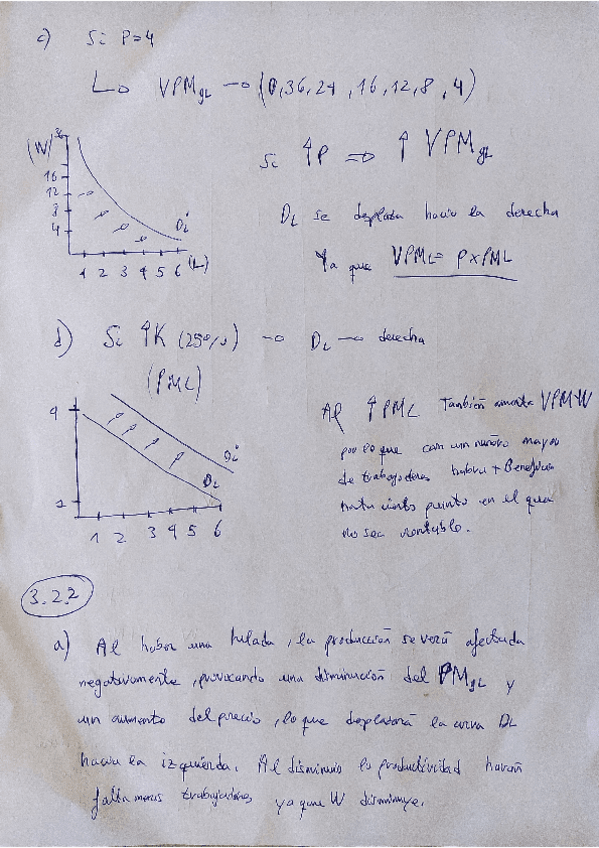 c) Si P=4
L→ VPMgL → (0,36,24,16,12,8,4)
(W) 36
16
12
8
4
DL'
1 2 3 4 5 6 (L)
Si ↑P ⇒ ↑ VPMgL
DL se desplaza hacia la derecha
Ya que VPML = P×PML
d) Si ↑K (25%) → DL → derecha
(PML)
9
2
DL'
DL
1 2 3 4 5 6
Al ↑PML También aumenta VPM
por lo que con un número mayor
de trabajadores habrá + Beneficio
hasta cierto punto en el que
no sea rentable.
3.2.2
a) Al haber una helada, la producción se verá afectada
negativamente, provocando una disminución del PMgL y
un aumento del precio, lo que desplazará la curva DL
hacia la izquierda. Al disminuir la productividad harán
falta menos trabajadores ya que W disminuye.